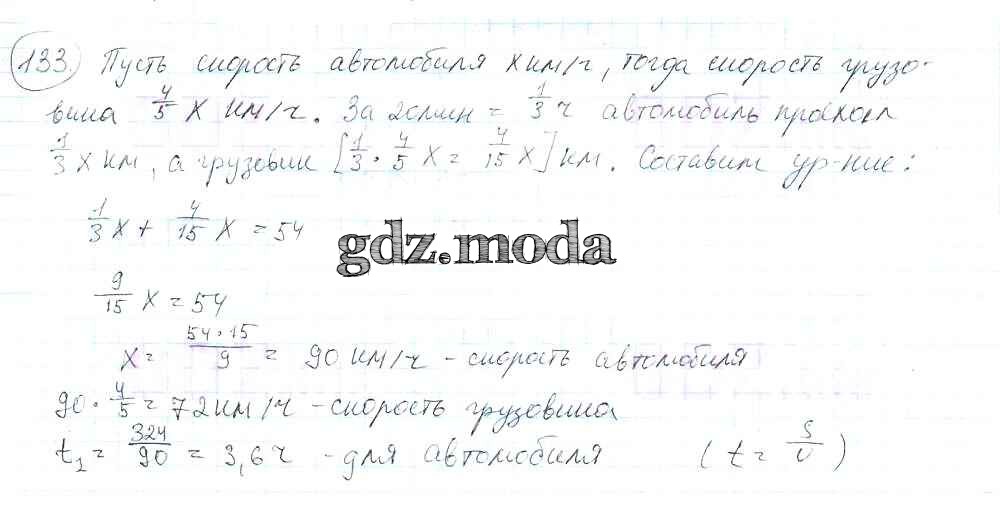 133. Пусть скорость автомобиля x км/ч, тогда скорость грузо-
вика 4/5 x км/ч. За 20 мин = 1/3 ч автомобиль проехал
1/3 x км, а грузовик [1/3 · 4/5 x = 4/15 x] км. Составим ур-ние:
1/3 x + 4/15 x = 54
gdz.moda
9/15 x = 54
x = 54·15/9 = 90 км/ч - скорость автомобиля
90 · 4/5 = 72 км/ч - скорость грузовика
t₁ = 324/90 = 3,6 ч - для автомобиля (t = S/v)